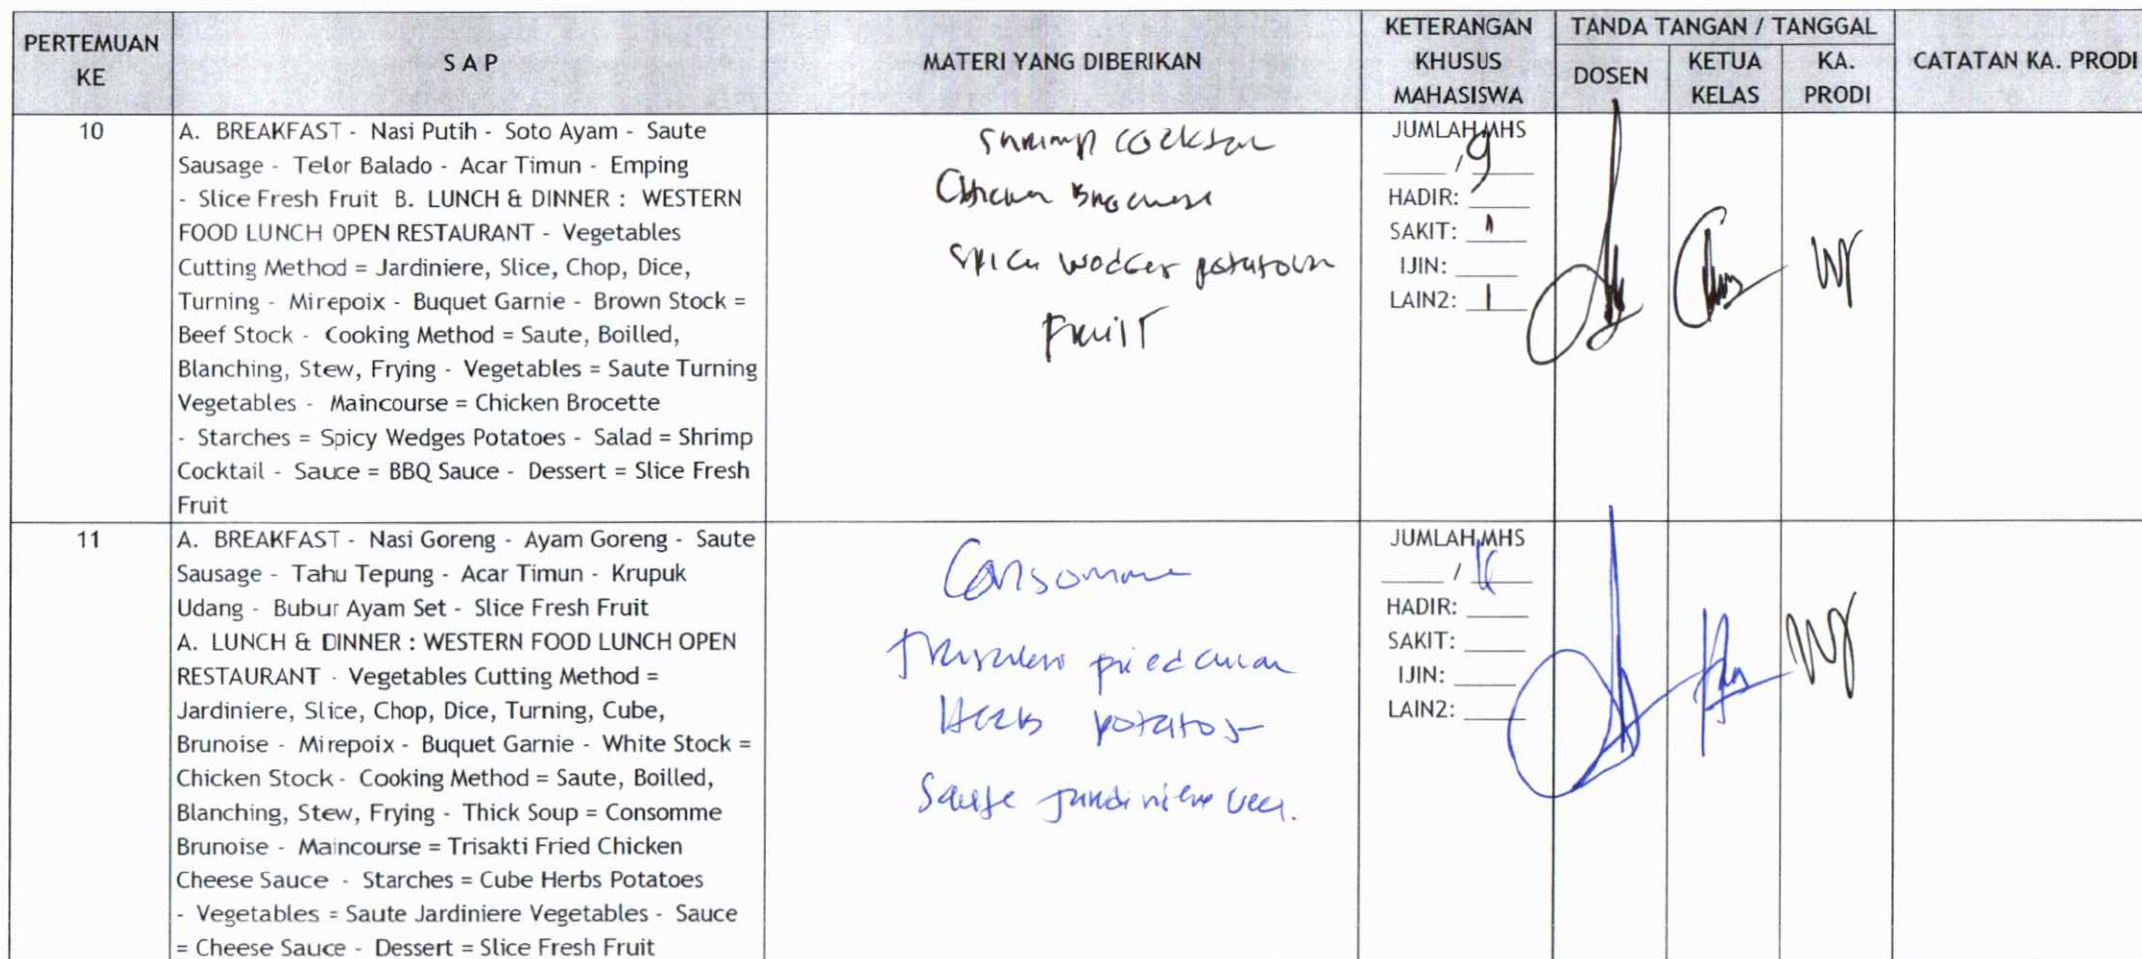 PERTEMUAN KE
S A P
MATERI YANG DIBERIKAN
KETERANGAN KHUSUS MAHASISWA
TANDA TANGAN / TANGGAL
DOSEN
KETUA KELAS
KA. PRODI
CATATAN KA. PRODI
10
A. BREAKFAST - Nasi Putih - Soto Ayam - Saute
Sausage - Telor Balado - Acar Timun - Emping
- Slice Fresh Fruit B. LUNCH & DINNER : WESTERN
FOOD LUNCH OPEN RESTAURANT - Vegetables
Cutting Method = Jardiniere, Slice, Chop, Dice,
Turning - Mirepoix - Buquet Garnie - Brown Stock =
Beef Stock - Cooking Method = Saute, Boilled,
Blanching, Stew, Frying - Vegetables = Saute Turning
Vegetables - Maincourse = Chicken Brocette
- Starches = Spicy Wedges Potatoes - Salad = Shrimp
Cocktail - Sauce = BBQ Sauce - Dessert = Slice Fresh
Fruit
Shrimp
Chicken
potatoes
Fruit
JUMLAH MHS
/ 9
HADIR:
SAKIT: 1
IJIN:
LAIN2: 1
11
A. BREAKFAST - Nasi Goreng - Ayam Goreng - Saute
Sausage - Tahu Tepung - Acar Timun - Krupuk
Udang - Bubur Ayam Set - Slice Fresh Fruit
A. LUNCH & DINNER : WESTERN FOOD LUNCH OPEN
RESTAURANT - Vegetables Cutting Method =
Jardiniere, Slice, Chop, Dice, Turning, Cube,
Brunoise - Mirepoix - Buquet Garnie - White Stock =
Chicken Stock - Cooking Method = Saute, Boilled,
Blanching, Stew, Frying - Thick Soup = Consomme
Brunoise - Maincourse = Trisakti Fried Chicken
Cheese Sauce - Starches = Cube Herbs Potatoes
- Vegetables = Saute Jardiniere Vegetables - Sauce
= Cheese Sauce - Dessert = Slice Fresh Fruit
Consomme
Herb potatos
Saute jardiniere veg.
JUMLAH MHS
/
HADIR:
SAKIT:
IJIN:
LAIN2: